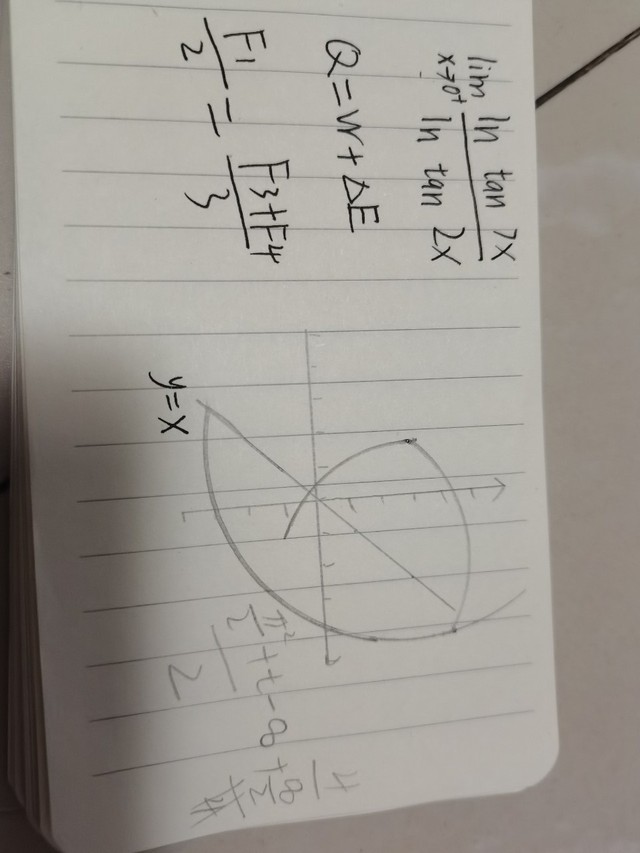 lim x→0⁺ ln tan 7x / ln tan 2x
Q=W+ΔE
F1/2 = F3+F4/3
y=x